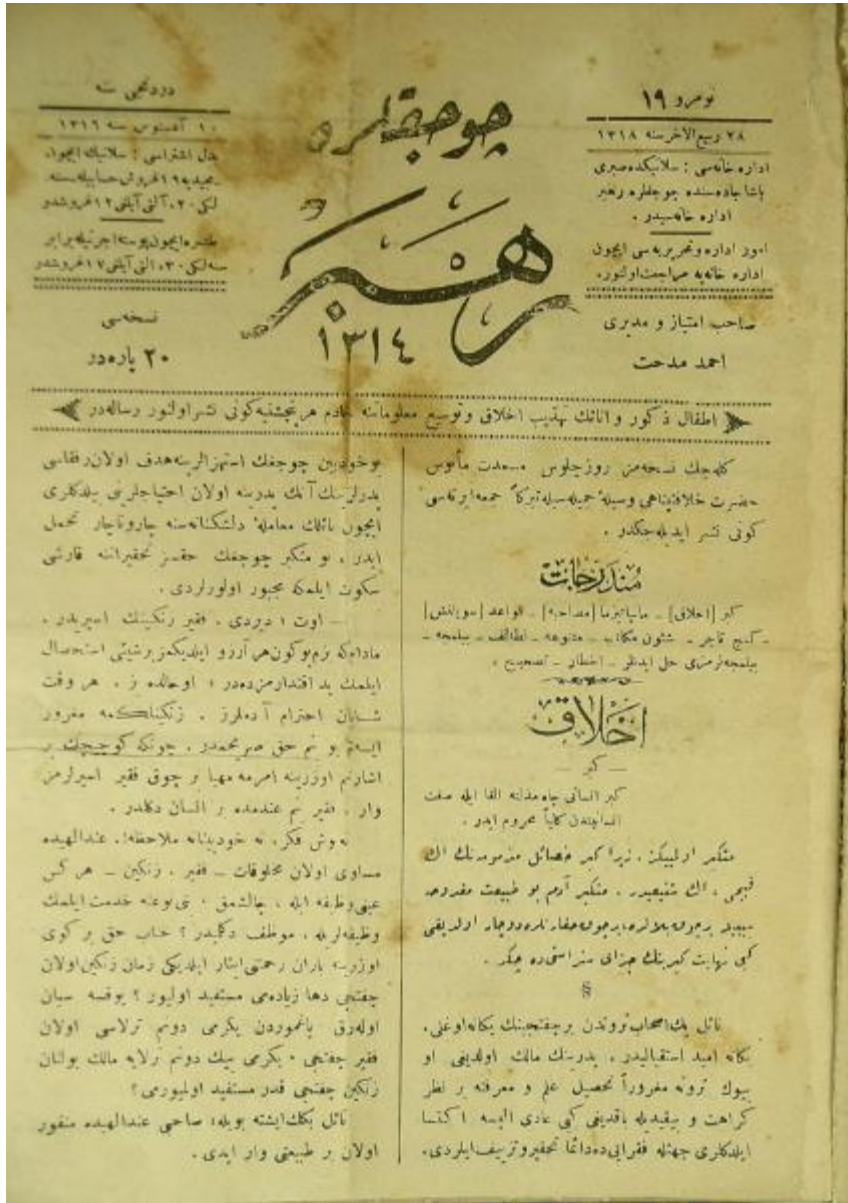 نومرو ١٩
٢٨ ربيع الاخر سنه ١٣١٨
اداره خانه‌سى : سلانيكده صبرى
پاشا جاده‌سنده چوجقلره رهبر
اداره خانه‌سيدر .
امور اداره و تحريريه‌سى ايچون
اداره خانه‌يه مراجعت اولنور.
صاحب امتياز و مديرى
احمد مدحت
چوجقلره
رهبر
١٣١٤
دردنجى سنه
١٠ اغستوس سنه ١٣١٦
بدل اشتراسى : سلانيك ايچون
مجيديه ١٩ غروش حسابيله سنه
لكى ٢٠، آلتى آيلغى ١٢ غروشدر
طشره ايچون پوسته اجرتيله برابر
سنه‌لكى ٣٠، التى آيلغى ١٧ غروشدر
نسخه‌سى
٢٠ پاره‌در
اطفال ذكور و اناثك تهذيب اخلاق و توسيع معلوماتنه خادم هر پنجشنبه كونى نشر اولنور رساله‌در
كله‌جك نسخه‌مز روز جلوس مسعدت مأنوس
حضرت خلافتپناهى وسيلهٔ جميله‌سيله تبركاً جمعه ايرته‌سى
كونى نشر ايديله‌جكدر .
مندرجات
كبر [اخلاق] ـ مانياتيزما [مصاحبه] ـ قواعد [سويلنش]
ـ كنج تاجر ـ شئون مكاتب ـ متنوعه ـ لطائف ـ بيلمجه ـ
بيلمجه‌لرمزى حل ايدنلر ـ اخطار ـ تصحيح .
اخلاق
ـ كبر ـ
كبر انسانى چاه مذلته القا ايله صفت
انسانيتدن كلياً محروم ايدر .
متكبر اولميكز . زيرا كبر خصائل مذمومه‌نك اك
قبيحى ، اك شنيعيدر . متكبر آدم بو طبيعت مفروضه
سببيله برچوق بلالره، برچوق حقارتلره دوچار اولديغى
كبى نهايت كبرينك جزاى سزاسنى ده چكر .
§
نائل بك اصحاب ثروتدن بر چفتجينك يكانه اوغلى،
يكانه اميد استقباليدر . پدرينك مالك اولديغى او
بيوك ثروته مغروراً تحصيل علم و معرفته بر نظر
كراهت و بيقيديله باقديغى كبى عادى البسه اكتسا
ايلدكلرى جهتله فقرايى ده دائما تحقير و تزييف ايلردى.
بو خودبين چوجغك استهزالرينه هدف اولان رفقاسى
پدرلرينك آنك پدرينه اولان احتياجلرينى بيلدكلرى
ايچون نائلك معاملهٔ دلشكنانه‌سنه چاروناچار تحمل
ايدر ، بو متكبر چوجغك حقسز تحقيراتنه قارشى
سكوت ايلمكه مجبور اولورلردى .
ـ اوت ! ديردى . فقير زنكينك اسيريدر .
مادامكه بزم بوكون هر آرزو ايلديكمز برشيئى استحصال
ايلمك يد اقتدارمزده‌در ؛ او حالده بز . هر وقت
شايان احترام آدملرز . زنكينلكمه مغرور
ايسه‌م بو بنم حق صريحمدر . چونكه كوچجك بر
اشارتم اوزرينه امرمه مهيا بر چوق فقير اسيرلرمز
وار . فقير بنم عندمده بر انسان دكلدر .
نه بوش فكر، نه خودبينانه ملاحظه!. عندالهيده
مساوى اولان مخلوقات ـ فقير . زنكين ـ هر كس
عينى وظيفه ايله ، چالشمق ، بنى نوعنه خدمت ايلمك
وظيفه‌لريله ، موظف دكلميدر ؟ جناب حق بر كوى
اوزرينه باران رحمتى ايثار ايلديكى زمان زنكين اولان
چفتجى دها زياده‌مى مستفيد اوليور ؟ يوقسه سيان
اوله‌رق ياغموردن يكرمى دونم ترلاسى اولان
فقير چفتجى ، يكرمى بيك دونم ترلايه مالك بولنان
زنكين چفتجى قدر مستفيد اولميورمى؟
نائل بكك ايشته بويله؛ صاحبى عندالهيده منفور
اولان بر طبيعتى وار ايدى .